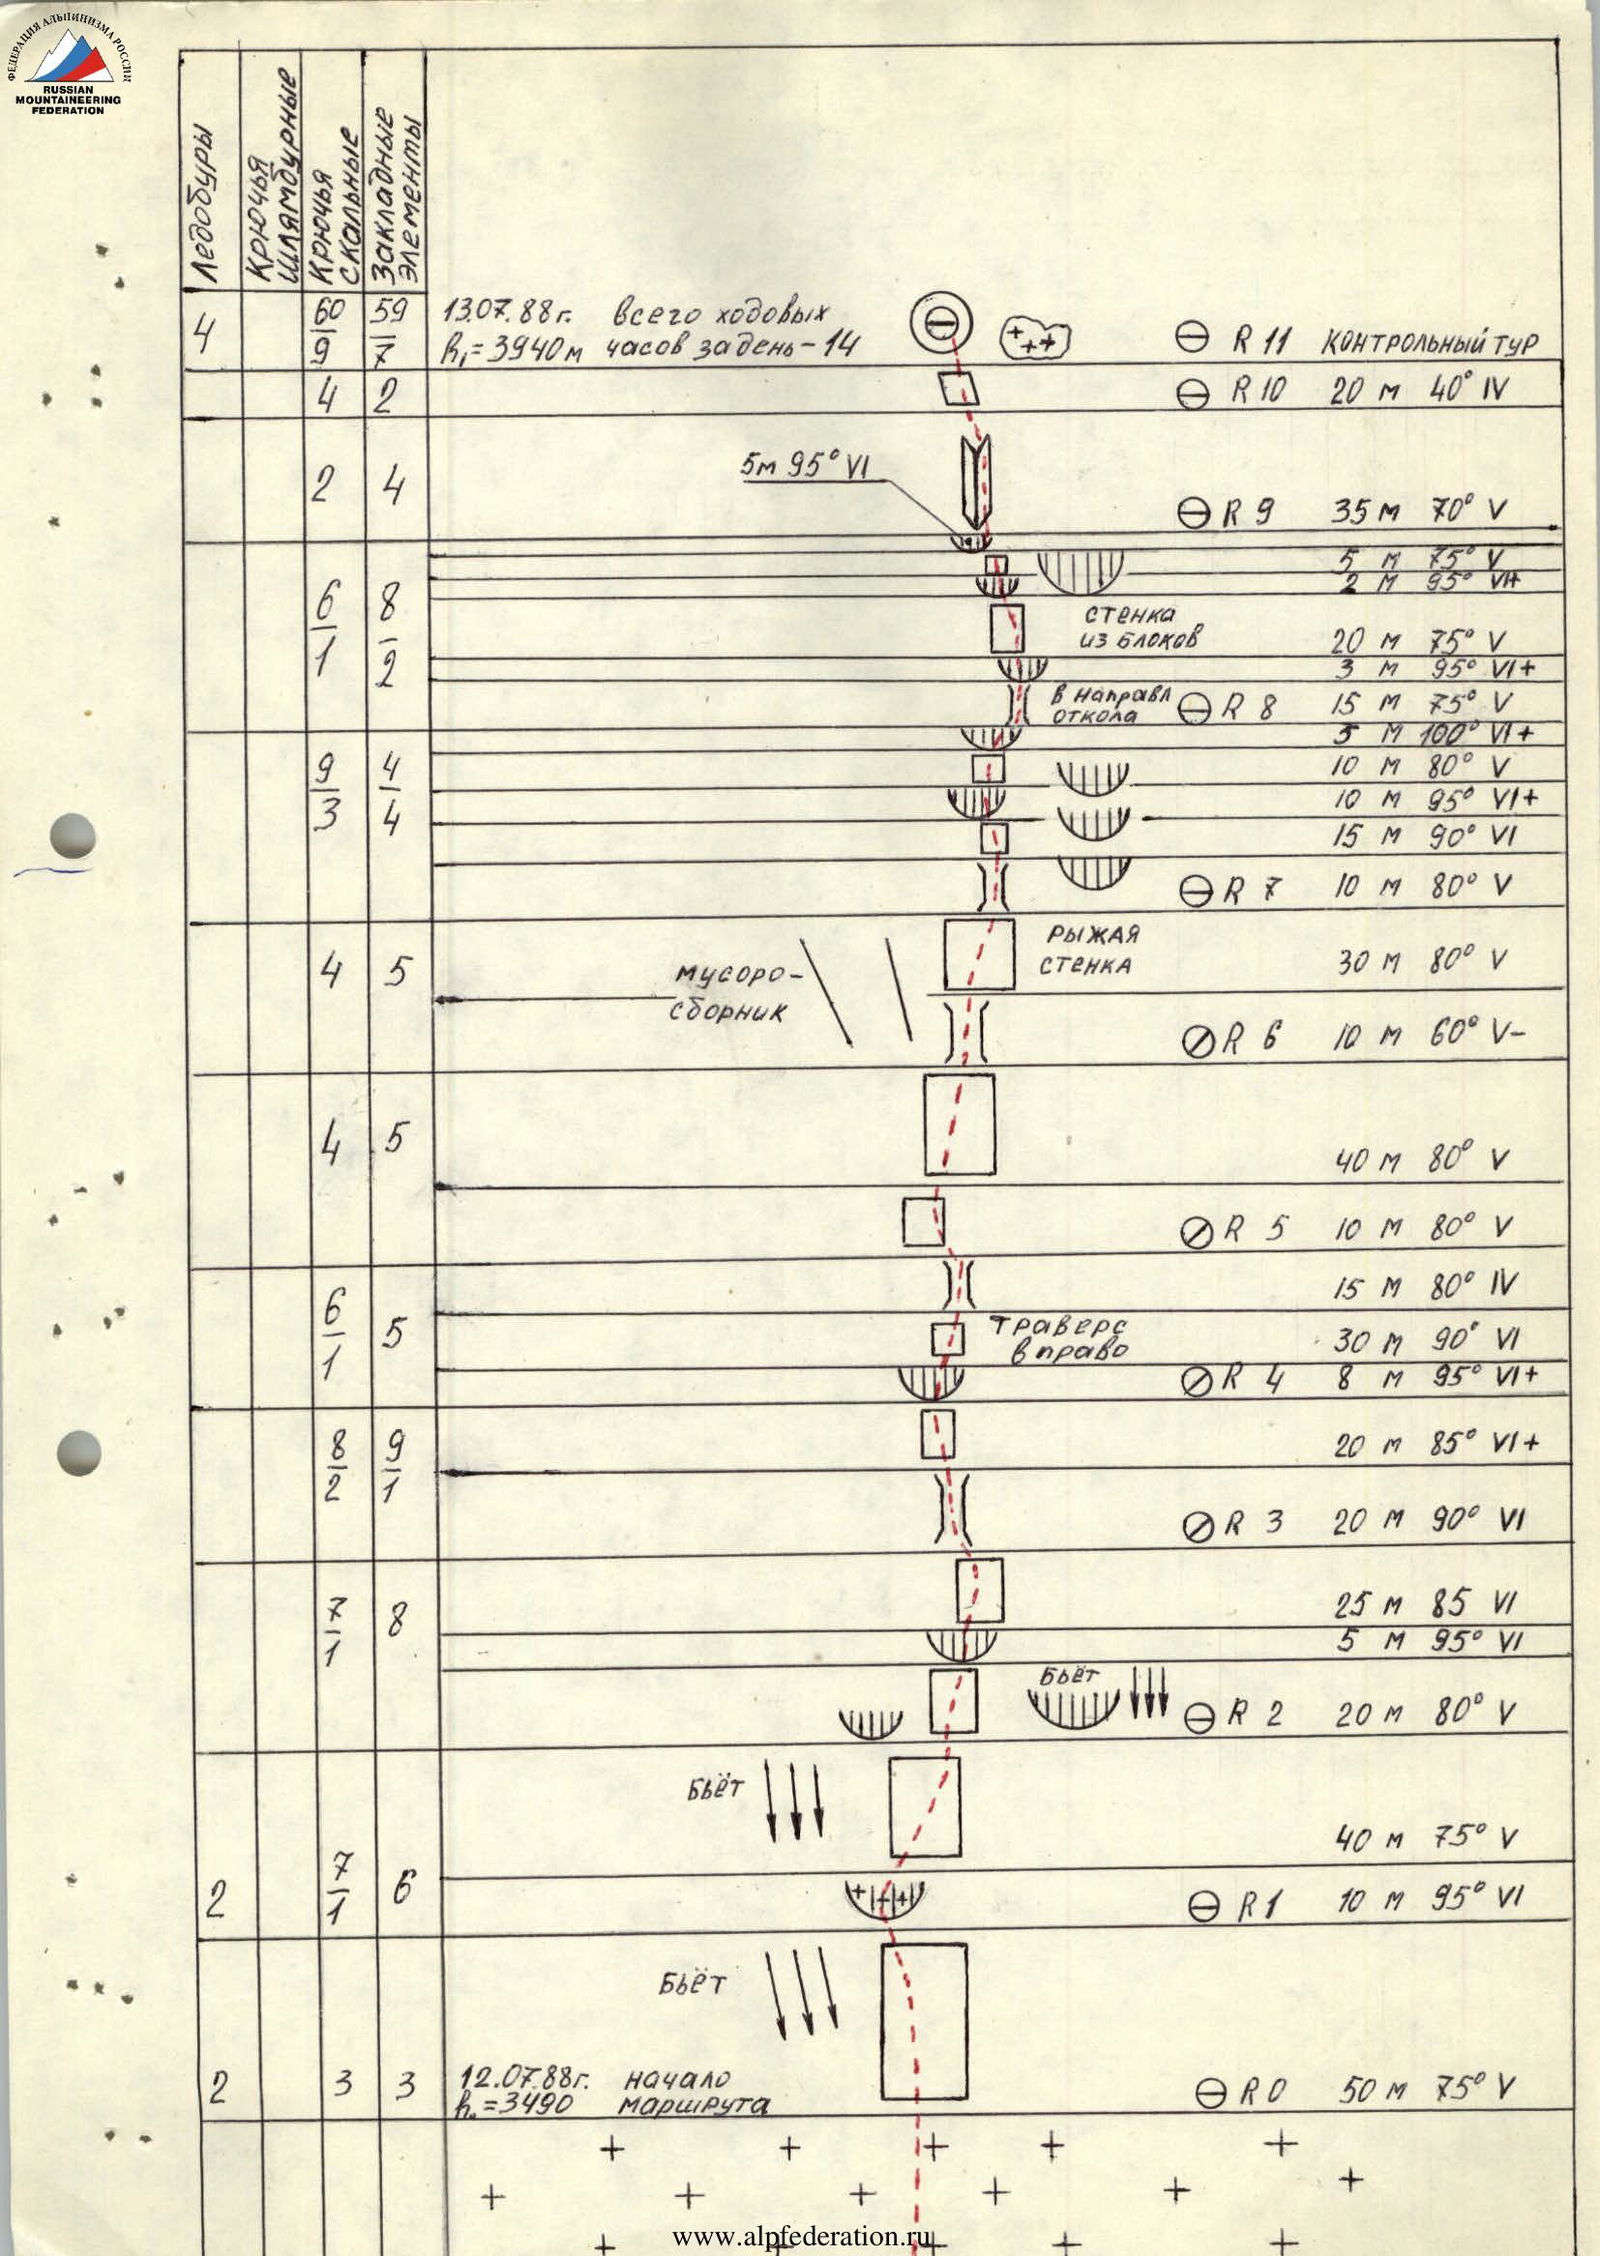 ФЕДЕРАЦИЯ АЛЬПИНИЗМА РОССИИ
RUSSIAN
MOUNTAINEERING
FEDERATION
Ледобуры
Крючья
шлямбурные
Крючья
скальные
Закладные
элементы
4 60/9 59/7 13.07.88г. всего ходовых
h₁=3940м часов за день-14
R 11 КОНТРОЛЬНЫЙ ТУР
4 2 R 10 20 м 40° IV
5м 95° VI
2 4 R 9 35 м 70° V
5 м 75° V
2 м 95° VI+
6/1 8/2
стенка
из блоков
20 м 75° V
3 м 95° VI+
в направл
откола
R 8 15 м 75° V
5 м 100° VI+
9/3 4/4
10 м 80° V
10 м 95° VI+
15 м 90° VI
R 7 10 м 80° V
4 5
РЫЖАЯ
СТЕНКА
30 м 80° V
мусоро-
сборник
R 6 10 м 60° V-
4 5
40 м 80° V
R 5 10 м 80° V
15 м 80° IV
6/1 5
траверс
вправо
30 м 90° VI
R 4 8 м 95° VI+
8/2 9/1
20 м 85° VI+
R 3 20 м 90° VI
7/1 8
25 м 85 VI
5 м 95° VI
Бьёт
R 2 20 м 80° V
Бьёт
40 м 75° V
2 7/1 6 R 1 10 м 95° VI
Бьёт
2 3 3 12.07.88г. начало
h₀=3490 маршрута
R 0 50 м 75° V
www.alpfederation.ru